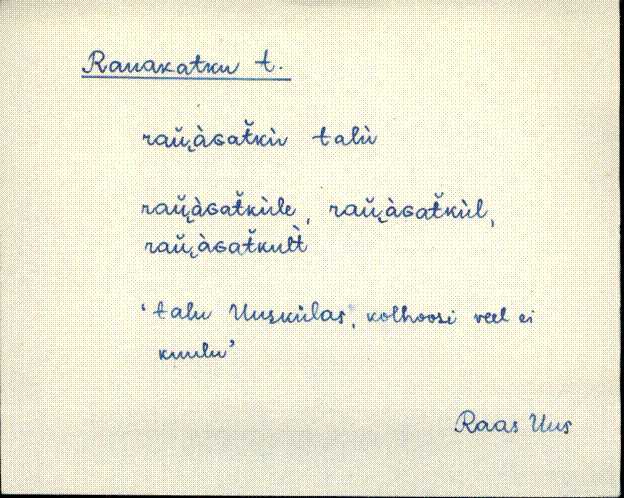 Rauakatku t.
raŭ̯àɢat̆kù talù
raŭ̯àɢat̆kùle, raŭ̯àɢat̆kùl,
raŭ̯àɢat̆kult̀
'talu Uuskülas, kolhoosi veel ei
kuulu'
Raas Uus